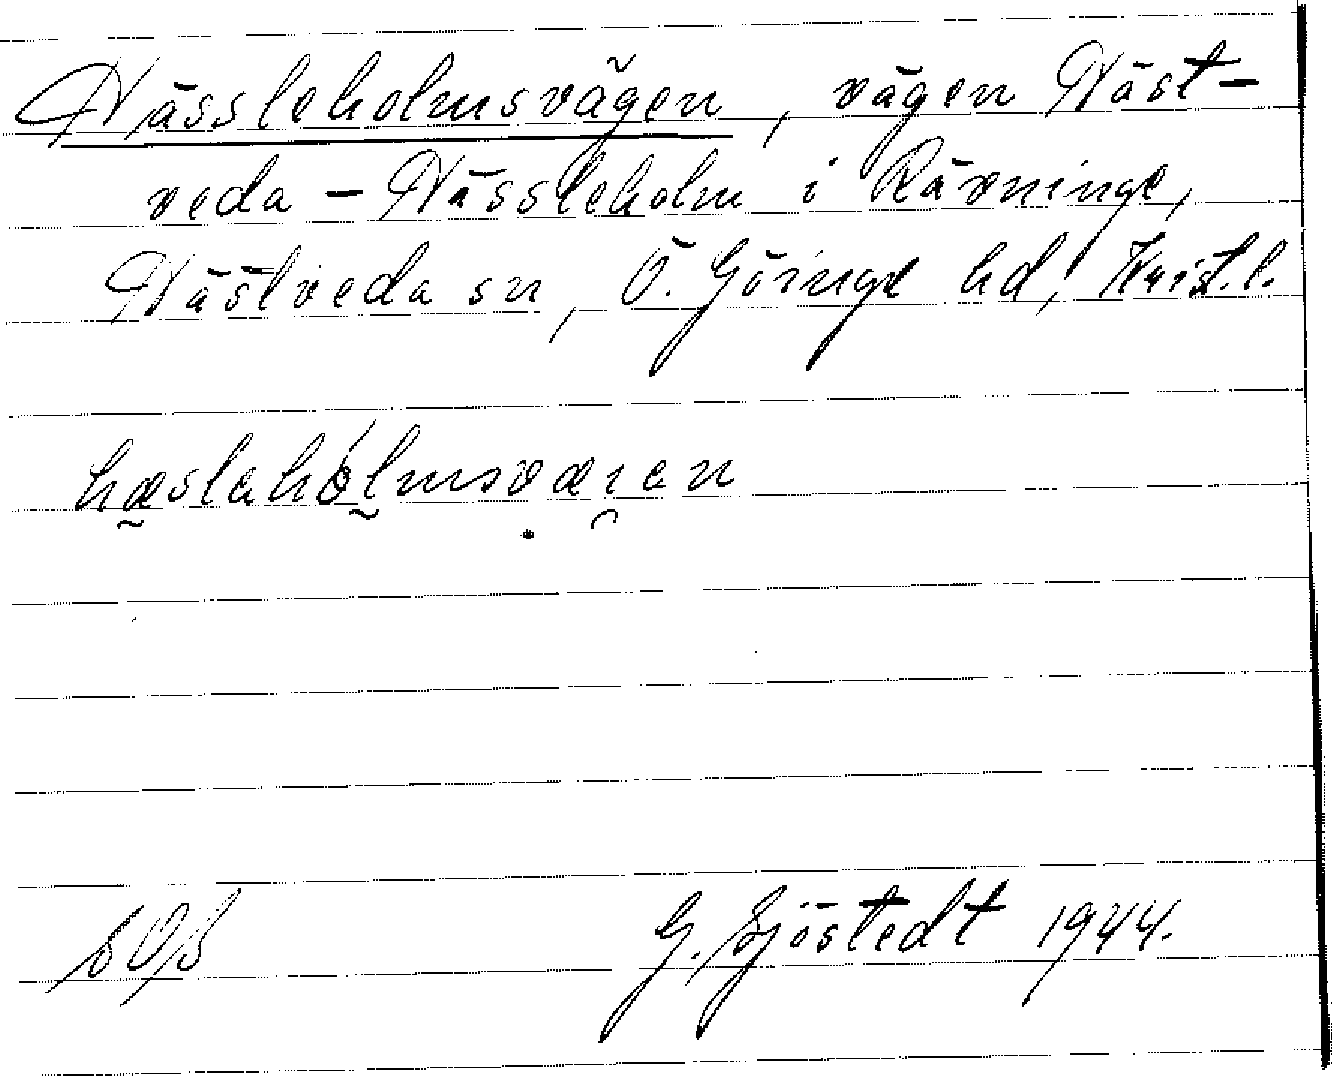 Hässleholmsvägen, vägen Häst-
veda – Hässleholm i Rävninge,
Hästveda sn, Ö. Göinge hd, Krist. l.
G. Sjöstedt 1944.